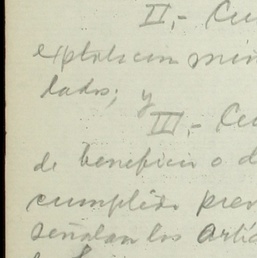 II.- Cu
explotacion min
lados; y
III.- Cu
de beneficio o d
cumplido prev
señalan los artíc